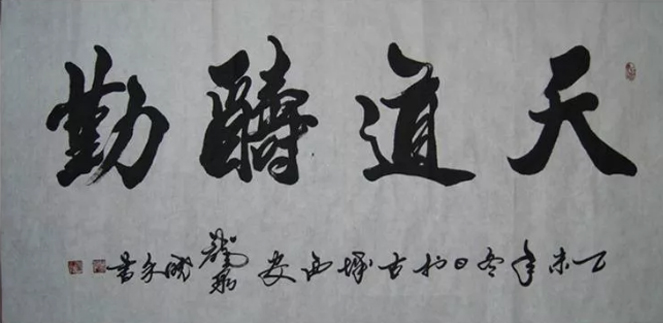 天道醻勤
未年冬日於古城西安